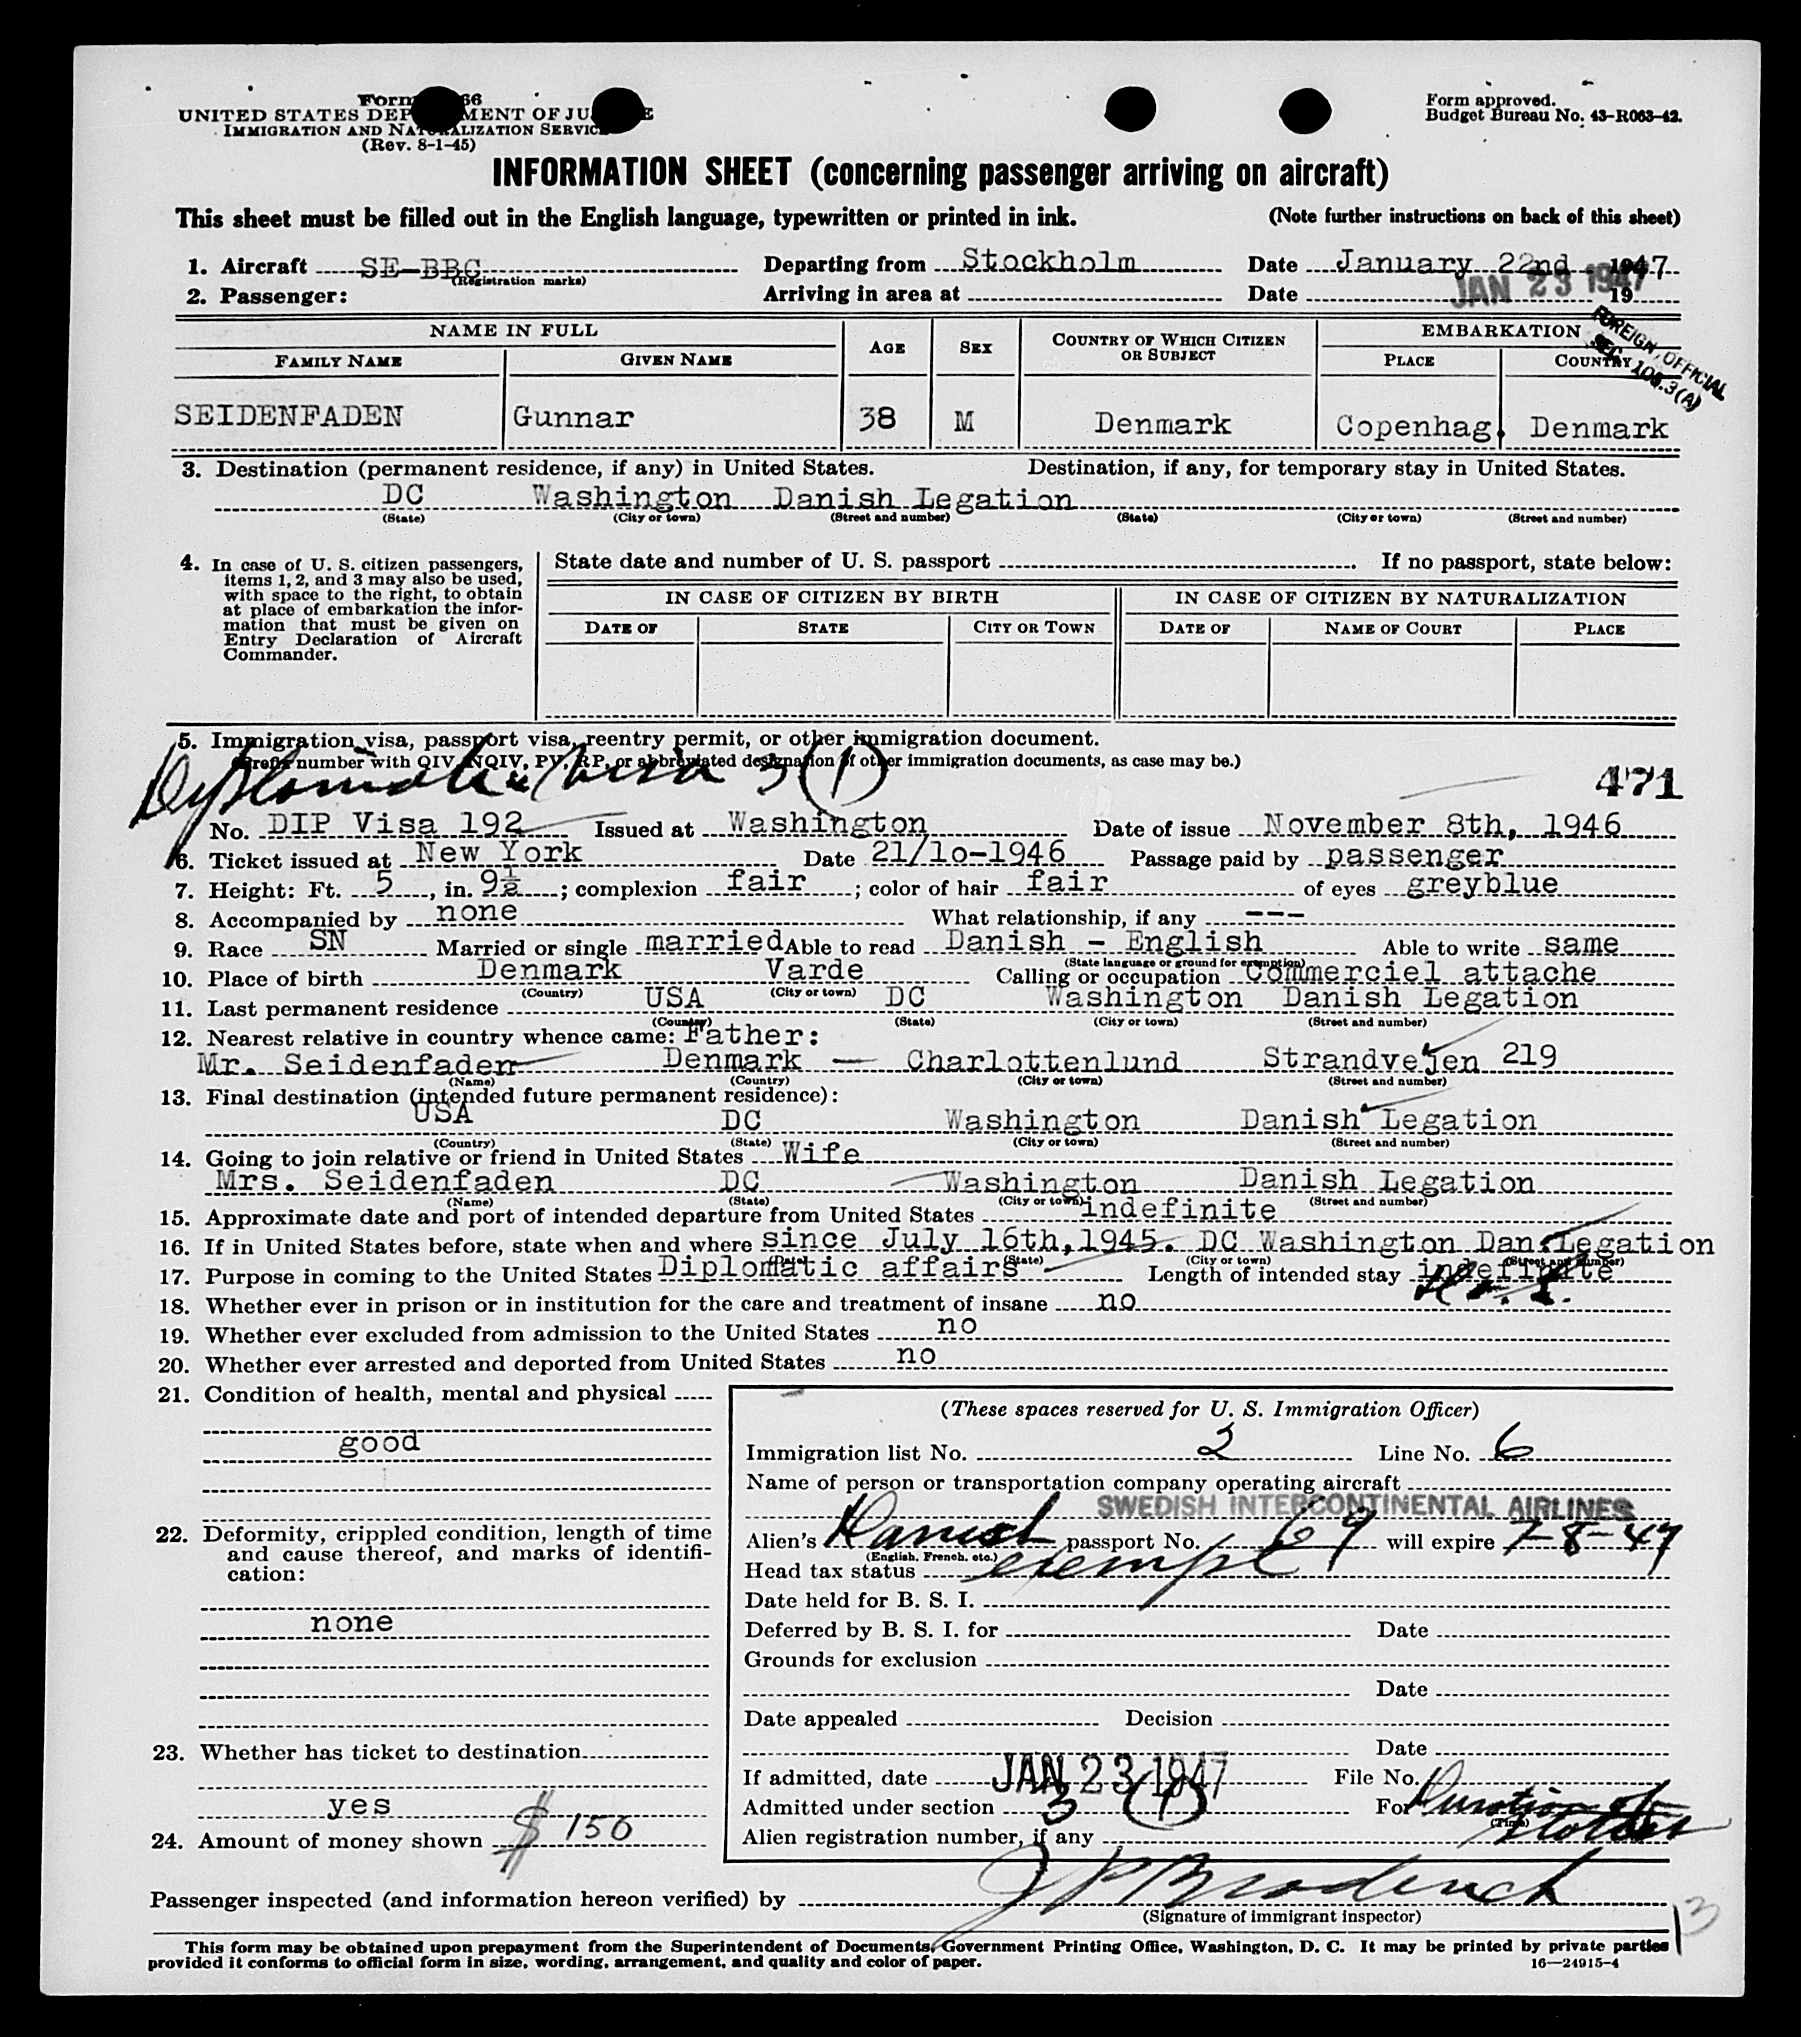 Form 66
UNITED STATES DEP MENT OF JU E
IMMIGRATION AND NATURALIZATION SERVICE
(Rev. 8-1-45)
Form approved.
Budget Bureau No. 43-R063-42.
INFORMATION SHEET (concerning passenger arriving on aircraft)
This sheet must be filled out in the English language, typewritten or printed in ink. (Note further instructions on back of this sheet)
1. Aircraft SE-BBC Departing from Stockholm Date January 22nd 1947
(Registration marks)
2. Passenger: Arriving in area at Date JAN 23 1947 19
FOREIGN OFFICIAL
SEC. 101.3(A)
NAME IN FULL AGE SEX COUNTRY OF WHICH CITIZEN OR SUBJECT EMBARKATION
FAMILY NAME GIVEN NAME PLACE COUNTRY
SEIDENFADEN Gunnar 38 M Denmark Copenhag. Denmark
3. Destination (permanent residence, if any) in United States. Destination, if any, for temporary stay in United States.
DC Washington Danish Legation
(State) (City or town) (Street and number) (State) (City or town) (Street and number)
4. In case of U. S. citizen passengers, items 1, 2, and 3 may also be used, with space to the right, to obtain at place of embarkation the information that must be given on Entry Declaration of Aircraft Commander.
State date and number of U. S. passport . If no passport, state below:
IN CASE OF CITIZEN BY BIRTH IN CASE OF CITIZEN BY NATURALIZATION
DATE OF STATE CITY OR TOWN DATE OF NAME OF COURT PLACE
5. Immigration visa, passport visa, reentry permit, or other immigration document.
(Prefix number with QIV, NQIV, PV, RP, or abbreviated designation of other immigration documents, as case may be.)
Diplomatic visa 3 (1)
471
No. DIP Visa 192 Issued at Washington Date of issue November 8th, 1946
6. Ticket issued at New York Date 21/10-1946 Passage paid by passenger
7. Height: Ft. 5, in. 9½; complexion fair; color of hair fair of eyes greyblue
8. Accompanied by none What relationship, if any ---
9. Race SN Married or single married Able to read Danish - English Able to write same
(State language or ground for exemption)
10. Place of birth Denmark Varde Calling or occupation Commerciel attache
(Country) (City or town)
11. Last permanent residence USA DC Washington Danish Legation
(Country) (State) (City or town) (Street and number)
12. Nearest relative in country whence came: Father:
Mr. Seidenfaden Denmark - Charlottenlund Strandvejen 219
(Name) (Country) (City or town) (Street and number)
13. Final destination (intended future permanent residence):
USA DC Washington Danish Legation
(Country) (State) (City or town) (Street and number)
14. Going to join relative or friend in United States Wife
Mrs. Seidenfaden DC Washington Danish Legation
(Name) (State) (City or town) (Street and number)
15. Approximate date and port of intended departure from United States indefinite
16. If in United States before, state when and where since July 16th, 1945. DC Washington Dan. Legation
(Date) (State) (City or town) (Street and number)
17. Purpose in coming to the United States Diplomatic affairs Length of intended stay indefinite
18. Whether ever in prison or in institution for the care and treatment of insane no
19. Whether ever excluded from admission to the United States no
20. Whether ever arrested and deported from United States no
21. Condition of health, mental and physical
good
22. Deformity, crippled condition, length of time and cause thereof, and marks of identification:
none
23. Whether has ticket to destination
yes
24. Amount of money shown $150
(These spaces reserved for U. S. Immigration Officer)
Immigration list No. 2 Line No. 6
Name of person or transportation company operating aircraft
SWEDISH INTERCONTINENTAL AIRLINES
Alien's Danish passport No. 69 will expire 7-8-47
(English, French, etc.)
Head tax status exempt
Date held for B. S. I.
Deferred by B. S. I. for Date
Grounds for exclusion
Date
Date appealed Decision
Date
If admitted, date JAN 23 1947 File No.
Admitted under section 3 (1) For Duration of Status
(Time)
Alien registration number, if any
Passenger inspected (and information hereon verified) by J P Broderick
(Signature of immigrant inspector)
13
This form may be obtained upon prepayment from the Superintendent of Documents, Government Printing Office, Washington, D. C. It may be printed by private parties
provided it conforms to official form in size, wording, arrangement, and quality and color of paper. 16—24915-4